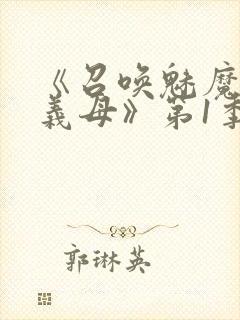 《召唤魅魔
義母》第1季
郭琳英